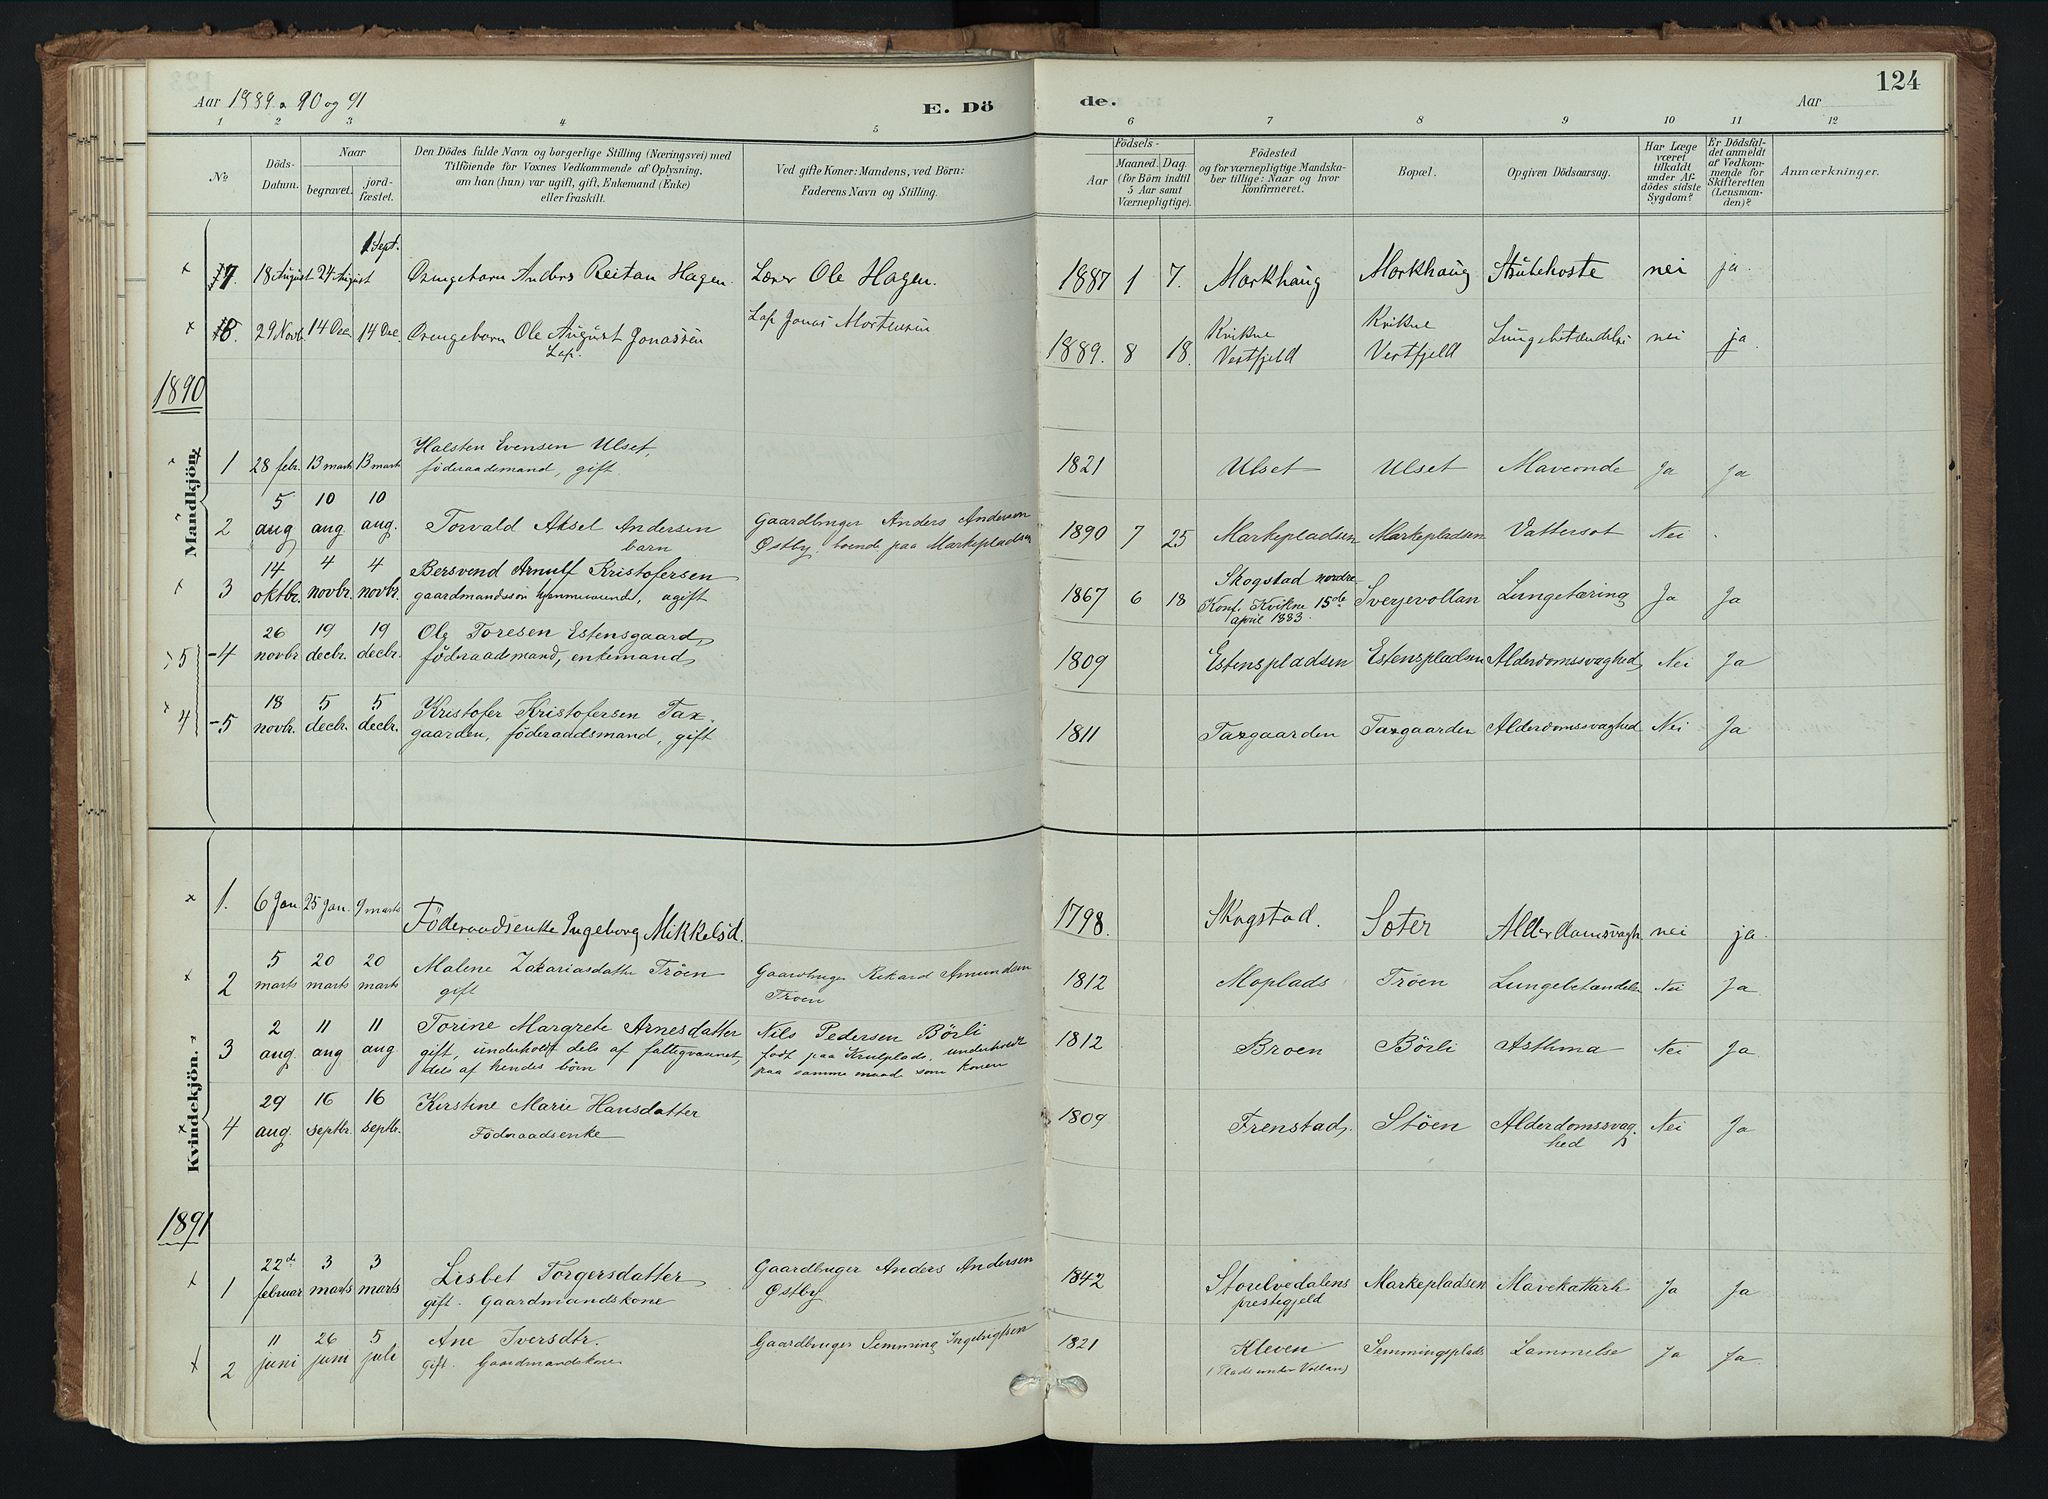 124
Aar 1889 90 og 91
E. Dö
de.
Aar
1 2 3 4 5 6 7 8 9 10 11 12
No
Döds-Datum.
Naar
begravet.
jord-fæstet.
Den Dödes fulde Navn og borgerlige Stilling (Næringsvei) med
Tilföiende for Voxnes Vedkommende af Oplysning,
om han (hun) var ugift, gift, Enkemand (Enke)
eller fraskilt.
Ved gifte Koner: Mandens, ved Börn:
Faderens Navn og Stilling.
Födsels-
Aar
Maaned. Dag.
(for Börn indtil
5 Aar samt
Værnepligtige).
Födested
og for værnepligtige Mandska-
ber tillige: Naar og hvor
konfirmeret.
Bopæl.
Opgiven Dödsaarsag.
Har Læge
været
tilkaldt
under Af-
dödes sidste
Sygdom?
Er Dödsfal-
det anmeldt
af Vedkom-
mende for
Skifteretten
(Lensman-
den)?
Anmærkninger.
1 Sept.
7. 18 August 24 August Drengebarn Anders Reitan Hagen. Lærer Ole Hagen. 1887 1 7. Morkhaug Morkhaug Strubehoste nei ja.
8. 29 Novb. 14 Dec 14 Dec. Drengebarn Ole August Jonassen Lap Jonas Mortensen 1889. 8 18. Kvikne Kvikne Lungebetændelse nei ja.
Lap. Vestfjeld Vestfjeld
1890
Mandkjön.
1 28 febr. 13 marts 13 marts Halsten Evensen Ulset, 1821 Ulset Ulset Maveonde Ja Ja
föderaadsmand, gift
2 5 aug 10 aug. 10 aug. Torvald Aksel Andersen Gaardbruger Anders Andersen 1890 7 25 Markepladsen Markepladsen Vattersot Nei
barn Østby, boende paa Markepladsen
3 14 oktbr. 4 novbr. 4 novbr. Bersvend Arnulf Kristofersen 1867 6 18 Skogstad nordre Sverjevollan Lungetæring Ja Ja
gaardmandssön hjemmeværende, ugift Konf. Kvikne 15de
april 1883.
5 -4 26 novbr. 19 decbr. 19 decbr. Ole Toresen Estensgaard, 1809 Estenspladsen Estenspladsen Alderdomssvaghed Nei Ja
föderaadsmand, enkemand
4 -5 18 novbr. 5 decbr. 5 decbr. Kristofer Kristofersen Tax- 1811 Taxgaarden Taxgaarden Alderdomssvaghed Nei Ja
gaarden, föderaadsmand, gift
Kvindekjön.
1. 6 Jan. 25 Jan. 9 marts Föderaadsenke Ingeborg Mikkelsd. 1798. Skogstad. Soter Alderdomsvagh. nei ja.
2 5 marts 20 marts 20 marts Malene Zakariasdatter Tröen Gaardbruger Rikard Amundsen 1812 Moplads Tröen Lungebetændelse Nei Ja
gift Troen
3 2 aug. 11 aug 11 aug Torine Margrete Arnesdatter Nils Pedersen Börli 1812 Broen Börli Asthma Nei Ja
gift, underholdt dels af fattigvæsenet, födt paa Krulplads, underholdt
dels af hendes börn paa samme maade som konen
4 29 aug. 16 septbr. 16 septbr. Kirstine Marie Hansdatter 1809 Frenstad, Stöen Alderdomssvag- Nei Ja
Föderaadsenke hed
1891
1 22d februar 3 marts 3 marts Lisbet Torgersdatter Gaardbruger Anders Andersen 1842 Storelvedalens Markepladsen Mavekattarh Ja Ja
gift. Gaardmandskone Østby prestegjeld
2 11 juni 26 juni 5 juli Ane Iversdtr. Gaardbruger Semming Ingebrigtsen 1821 Kleven Semmingsplads Lammelse Ja Ja.
gift. Gaardmandskone (Plads under Vollan)